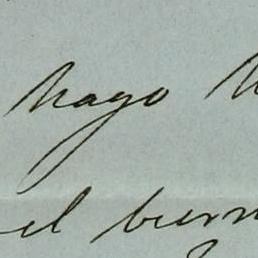 hago
el buen